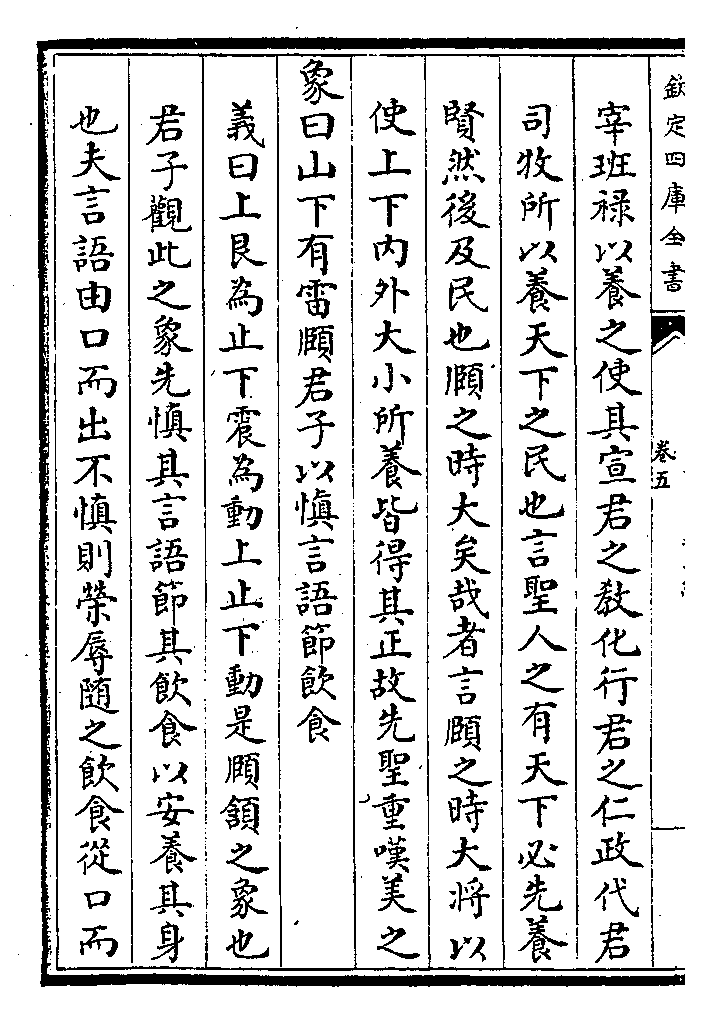 欽定四庫全書
卷五
宰班祿以養之使其宣君之敎化行君之仁政代君
司牧所以養天下之民也言聖人之有天下必先養
賢然後及民也頤之時大矣哉者言頤之時大將以
使上下內外大小所養皆得其正故先聖重嘆美之
象曰山下有雷頤君子以慎言語節飲食
義曰上艮為止下震為動上止下動是頤頷之象也
君子觀此之象先慎其言語節其飲食以安養其身
也夫言語由口而出不慎則榮辱隨之飲食從口而